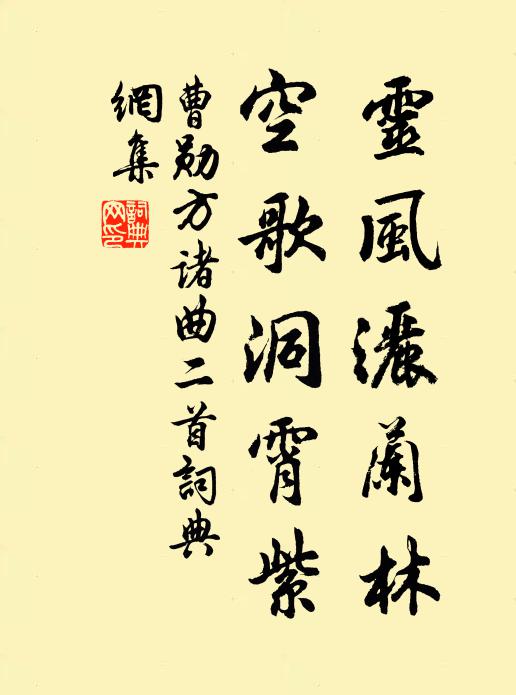 靈風灑蘭林
空歌洞霄紫
曹勛方諸曲二首詞典
網集
詞典網印